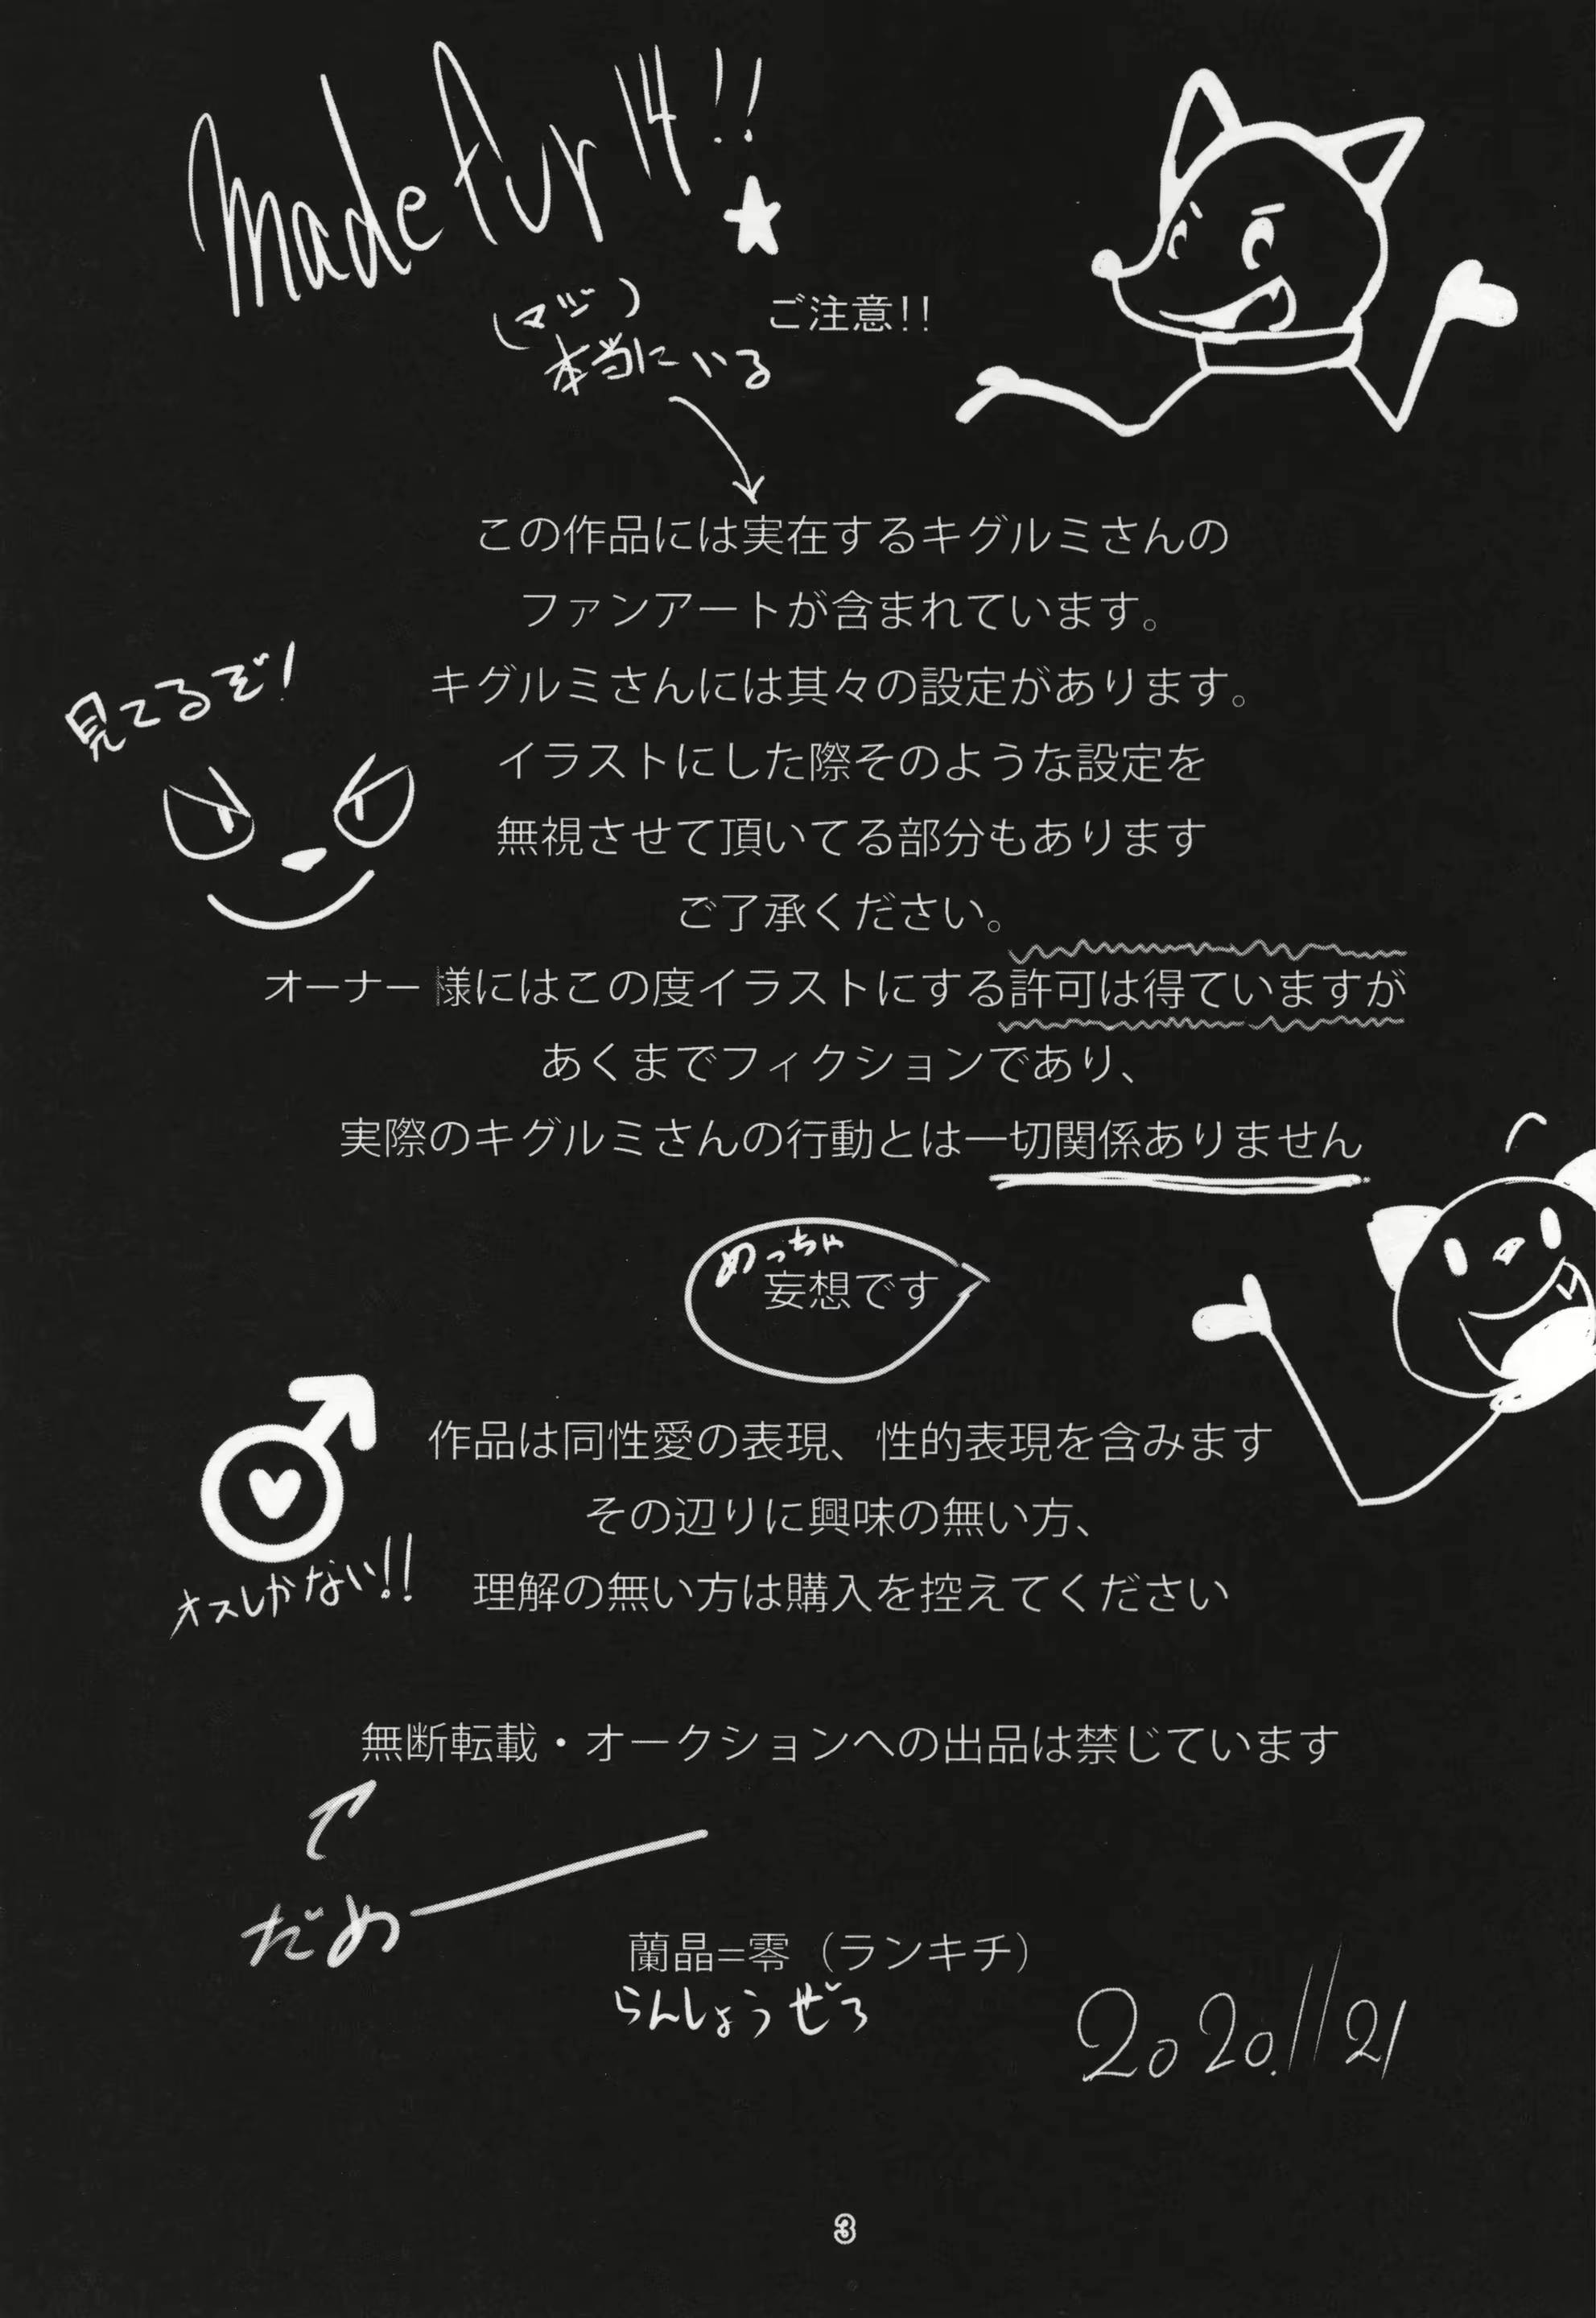 made fur 14!!
ご注意!!
(マジ)
本当にいる
この作品には実在するキグルミさんの
ファンアートが含まれています。
キグルミさんには其々の設定があります。
見てるぞ!
イラストにした際そのような設定を
無視させて頂いてる部分もあります
ご了承ください。
オーナー様にはこの度イラストにする許可は得ていますが
あくまでフィクションであり、
実際のキグルミさんの行動とは一切関係ありません
めっちゃ
妄想です
作品は同性愛の表現、性的表現を含みます
その辺りに興味の無い方、
オスしかない!!
理解の無い方は購入を控えてください
無断転載・オークションへの出品は禁じています
だめー
蘭晶=零（ランキチ）
らんしょうぜろ
2020.11 21
3